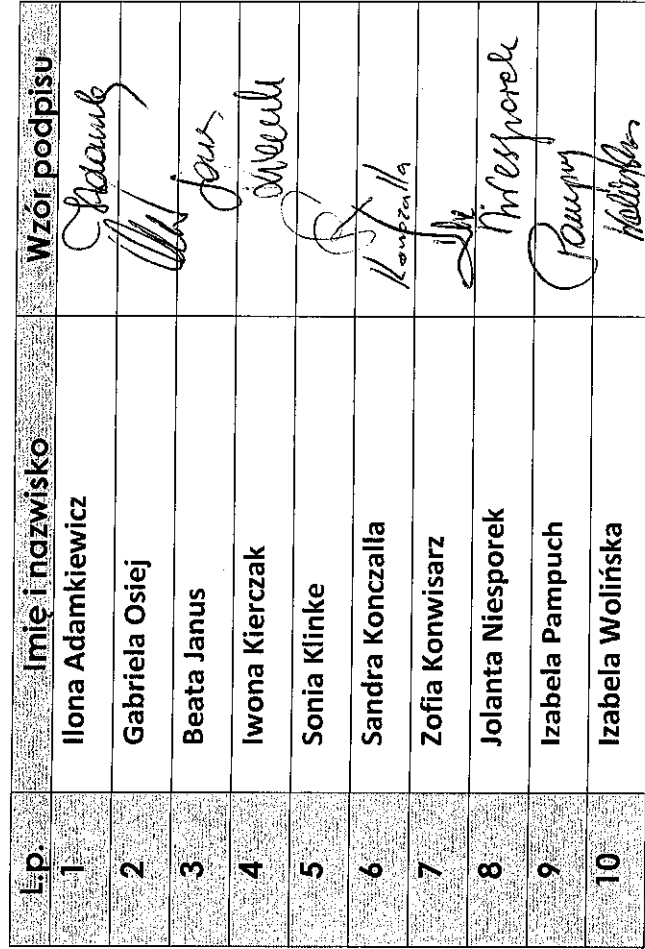 L.p. Imię i nazwisko Wzór podpisu
1 Ilona Adamkiewicz
2 Gabriela Osiej
3 Beata Janus
4 Iwona Kierczak
5 Sonia Klinke
6 Sandra Konczalla Konczalla
7 Zofia Konwisarz
8 Jolanta Niesporek Niesporek
9 Izabela Pampuch
10 Izabela Wolińska